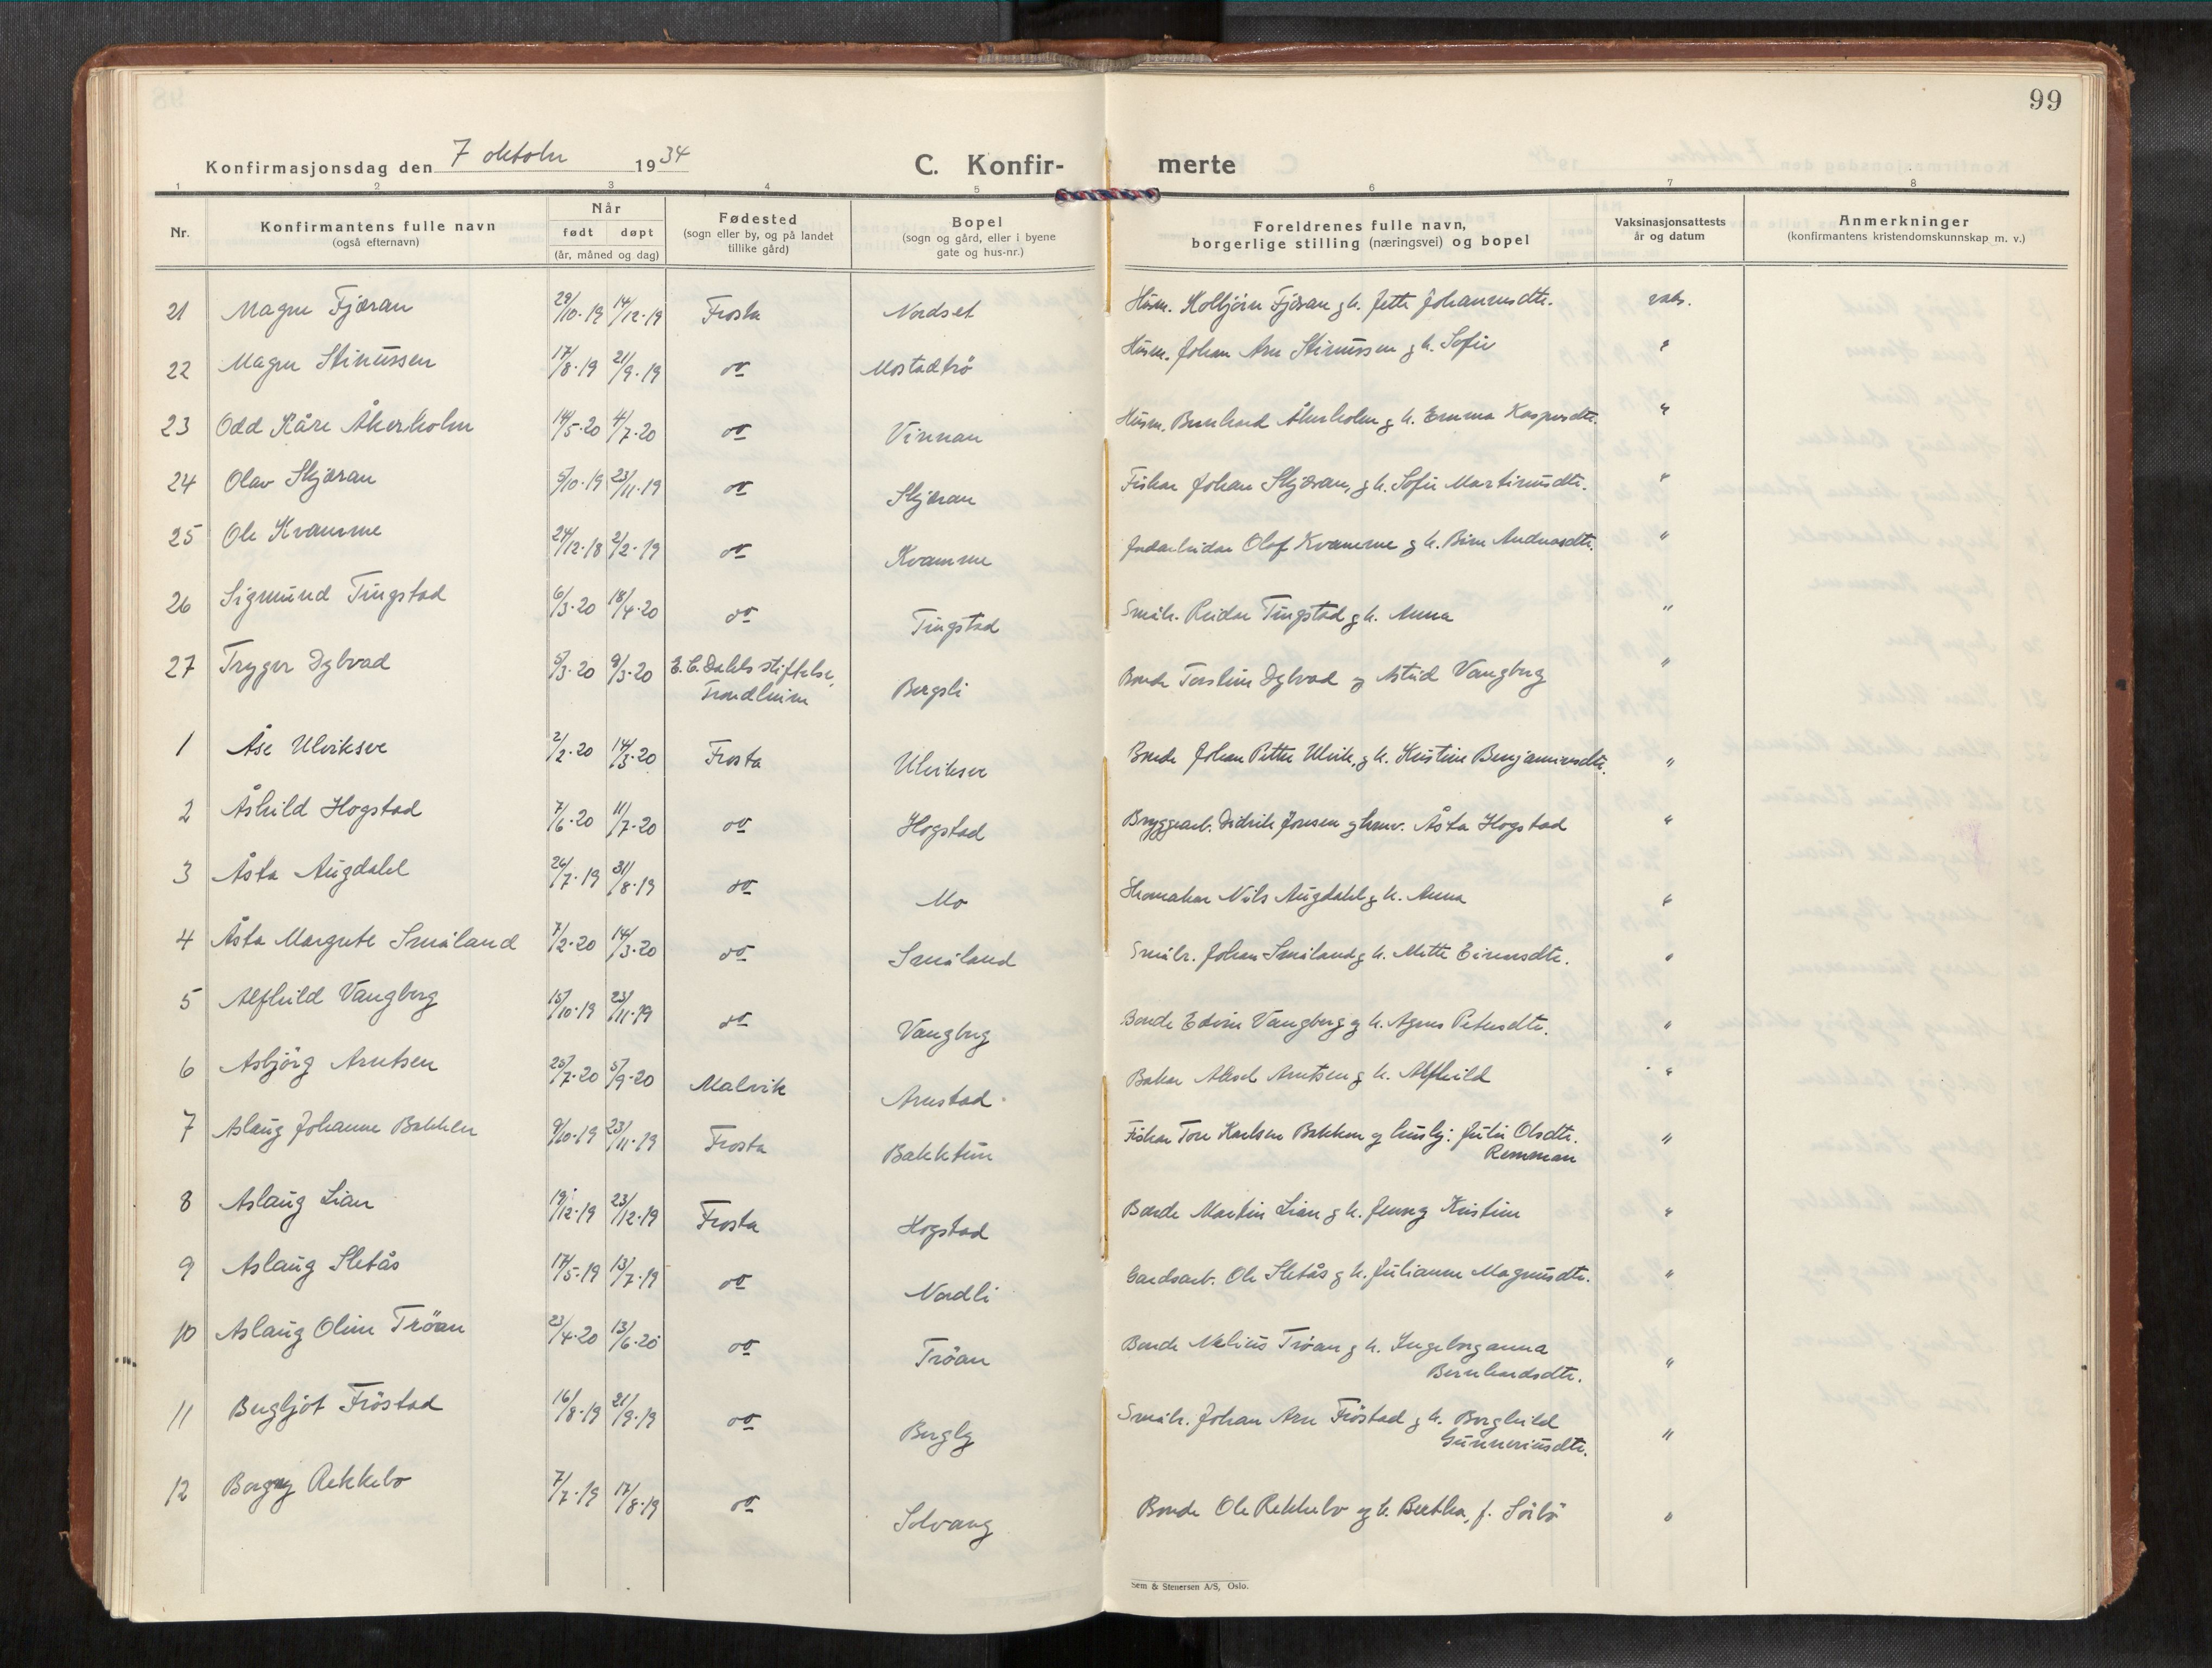 99
Konfirmasjonsdag den 7 oktobr 1934
C. Konfir- merte
1 2 3 4 5 6 7 8
Nr.
Konfirmantens fulle navn
(også efternavn)
Når
født døpt
(år, måned og dag)
Fødested
(sogn eller by, og på landet
tillike gård)
Bopel
(sogn og gård, eller i byene
gate og hus-nr.)
Foreldrenes fulle navn,
borgerlige stilling (næringsvei) og bopel
Vaksinasjonsattests
år og datum
Anmerkninger
(konfirmantens kristendomskunnskap m. v.)
21 Magne Fjæran 29/10-19 14/12-19 Frosta Nordset Husm. Kolbjörn Fjæran g h. Jette Johannesdtr. vaks.
22 Magne Stinussen 17/8-19 21/9-19 do Mostadtrö Husm. Johan Arn Stinussen g h. Sofie "
23 Odd Kåre Åkerholm 14/5-20 4/7-20 do Vinnan Husm. Bernhard Åkerholm g h. Emma Kaspersdtr. "
24 Olav Skjæran 5/10-19 23/11-19 do Skjæran Fiskar Johan Skjæran, g h. Sofie Martinusdtr. "
25 Ole Kvamme 24/12-18 2/2-19 do Kvamme Olaf Kvamme g h. Andreasdtr. "
26 Sigmund Tingstad 6/3-20 18/4-20 do Tingstad Småbr. Reidar Tingstad g h. Anna "
27 Trygve Dybvad 5/3-20 9/3-20 E. C. Dahls stiftelse,
Trondheim Bergsli Bonde Torstein Dybvad og Astrid Vangberg "
1 Åse Ulvikseve 2/2-20 14/3-20 Frosta Bonde Johan Petter Ulvik, g h. Kristine Benjaminsdtr. "
2 Åshild Hogstad 7/6-20 11/7-20 do Hogstad Bryggearb. Didrik Jonsen g Åsta Hogstad "
3 Åsta Augdahl 26/7-19 31/8-19 do Mo Skomakar Nils Augdahl g h. Anna "
4 Åsta Margrete Småland 7/2-20 14/3-20 do Småland Småbr. Johan Småland g h. Mette Einarsdtr. "
5 Alfhild Vangberg 15/10-19 23/11-19 do Vangberg Bonde Edvin Vangberg g h. Agnes Petersdtr. "
6 Asbjörg Arntsen 25/7-20 5/9-20 Malvik Arnstad Bakar Aksel Arntsen g h. Alfhild "
7 Aslaug Johanne Bakken 9/10-19 23/11-19 Frosta Bakktun Fiskar Tore Karlsen Bakken g Julie Olsdtr.
Remman "
8 Aslaug Lian 19/12-19 23/12-19 Frosta Hogstad Bonde Martin Lian g h. Jenny Kristine "
9 Aslaug Sletås 17/5-19 13/7-19 do Nordli Gardsarb. Ole Sletås g h. Julianne Magnusdtr. "
10 Aslaug Oline Tröan 23/4-20 13/6-20 do Tröan Bonde Nelius Tröan g h. Ingeborganna
Bernhardsdtr. "
11 Bergljot Fröstad 16/8-19 21/9-19 do Bergly Småbr. Johan Arn Fröstad g h. Borghild
Gunneriusdtr. "
12 Borgny Rekkebo 7/7-19 17/8-19 do Solvang Bonde Ole Rekkebo og h. Bertha, f. "
Sem & Stenersen A/S, Oslo.